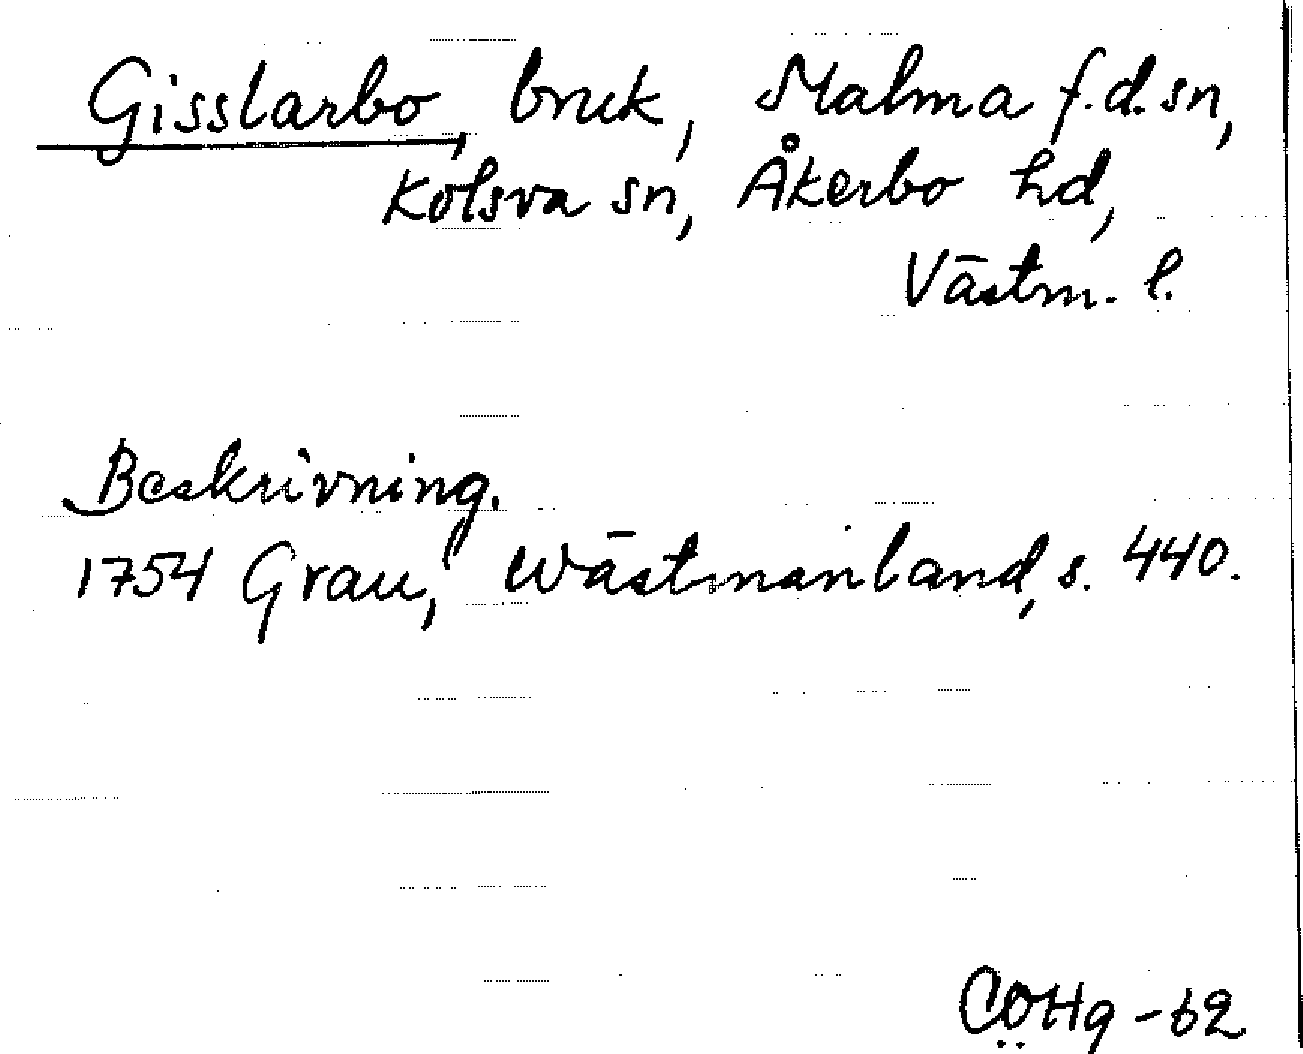 Gisslarbo, bruk, Malma f.d. sn,
Kolsva sn, Åkerbo hd,
Västm. l.
Beskrivning.
1754 Grau, Wästmanland, s. 440.
-62